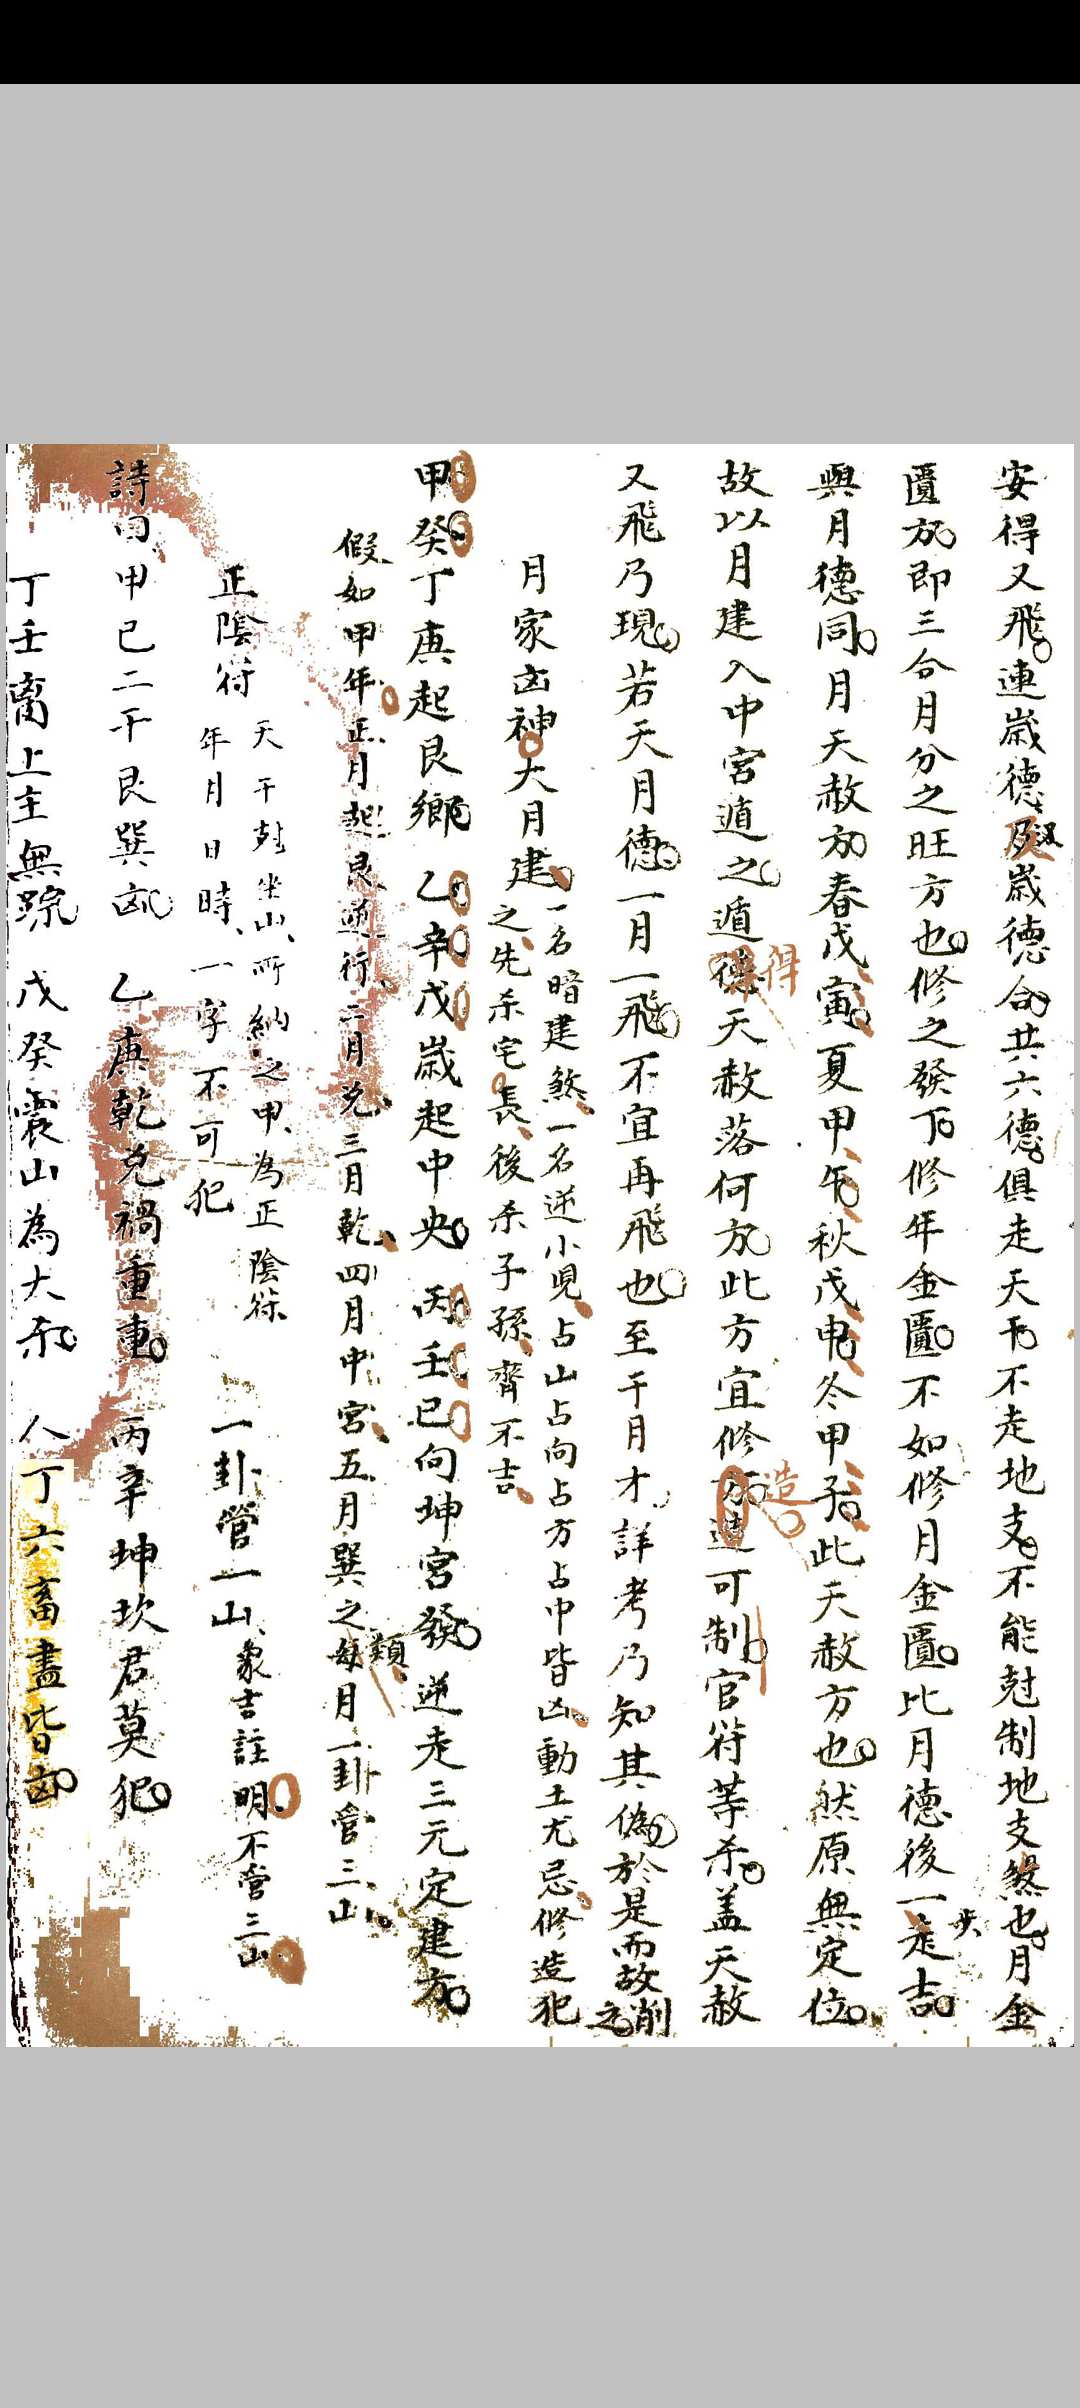 安得又飛連歲德及歲德合共六德俱走天干不走地支不能尅制地支煞也月金
匱方即三合月分之旺方也修之發丁修年金匱不如修月金匱比月德後一走步吉
與月德同月天赦方春戊寅夏甲午秋戊申冬甲子此天赦方也然原無定位
故以月建入中宮遁之遁得天赦落何方此方宜修造可制官符等杀盖天赦
又飛乃現若天月德一月一飛不宜再飛也至千月才詳考乃知其偽於是而故削之
月家凶神大月建一名暗建煞一名逆小児占山占向占方占中皆凶動土尤忌修造犯
之先杀宅長後杀子孫齊不吉
甲癸丁庚起艮鄉乙辛戊歲起中央丙壬巳向坤宮發逆走三元定建方
假如甲年正月起艮逆行二月兌三月乾四月中宮五月巽之類每月一卦管三山
正陰符天干尅坐山所納之甲為正陰符
年月日時一字不可犯
一卦管一山象吉註明不管三山
詩曰甲己二干艮巽凶乙庚乾兌禍重重丙辛坤坎君莫犯
丁壬离上主無踪戊癸震山為大杀人丁六畜盡皆凶